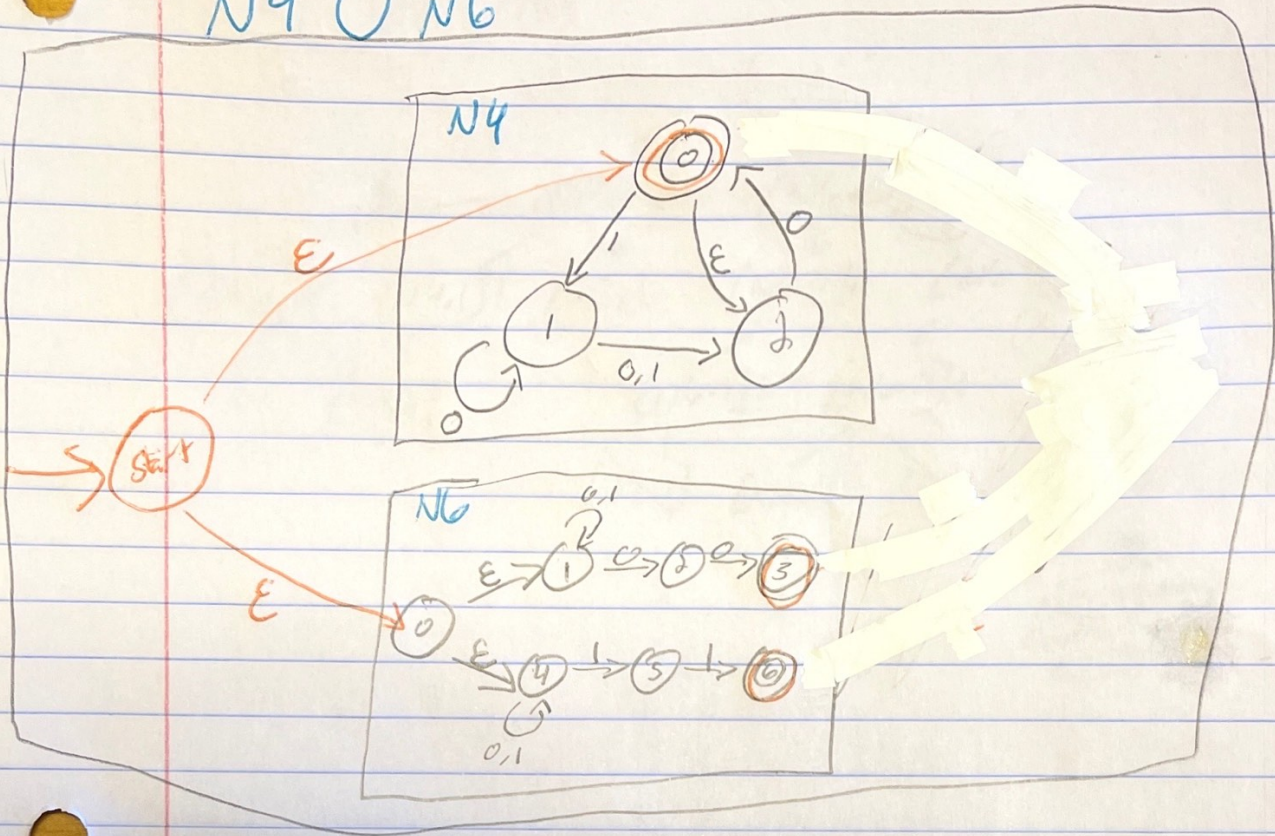 N4 ∪ N6
N4
0
ε
1
ε
0
1
2
0,1
0
Start
N6
0,1
ε
1
0
2
0
3
0
ε
ε
4
1
5
1
6
0,1